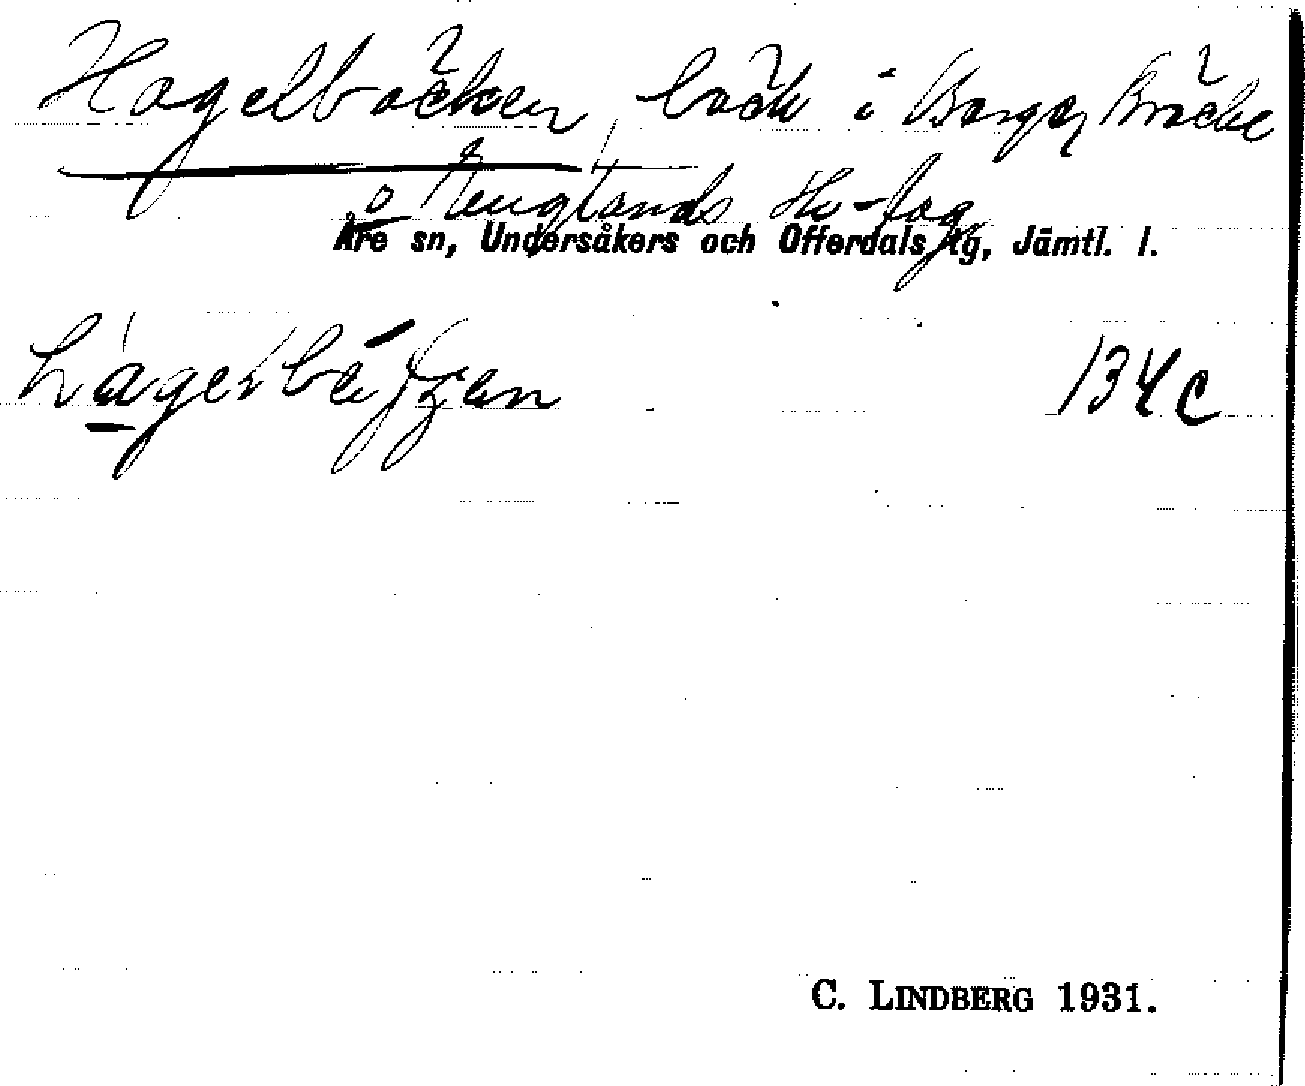 Hagelbäcken, bäck i Berge, Bräcke
o Renglands Hv-lag
Åre sn, Undersåkers och Offerdals tg, Jämtl. l.
134c
C. LINDBERG 1931.